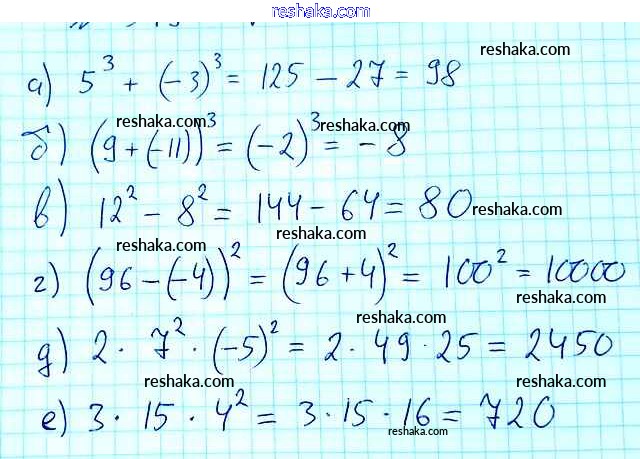 reshaka.com
reshaka.com
а) 5³ + (-3)³ = 125 - 27 = 98
reshaka.com reshaka.com
б) (9+(-11))³ = (-2)³ = -8
в) 12² - 8² = 144 - 64 = 80 reshaka.com
reshaka.com reshaka.com
г) (96-(-4))² = (96+4)² = 100² = 10000
reshaka.com
reshaka.com
д) 2 · 7² · (-5)² = 2 · 49 · 25 = 2450
reshaka.com reshaka.com
reshaka.com
е) 3 · 15 · 4² = 3 · 15 · 16 = 720
reshaka.com
reshaka.com